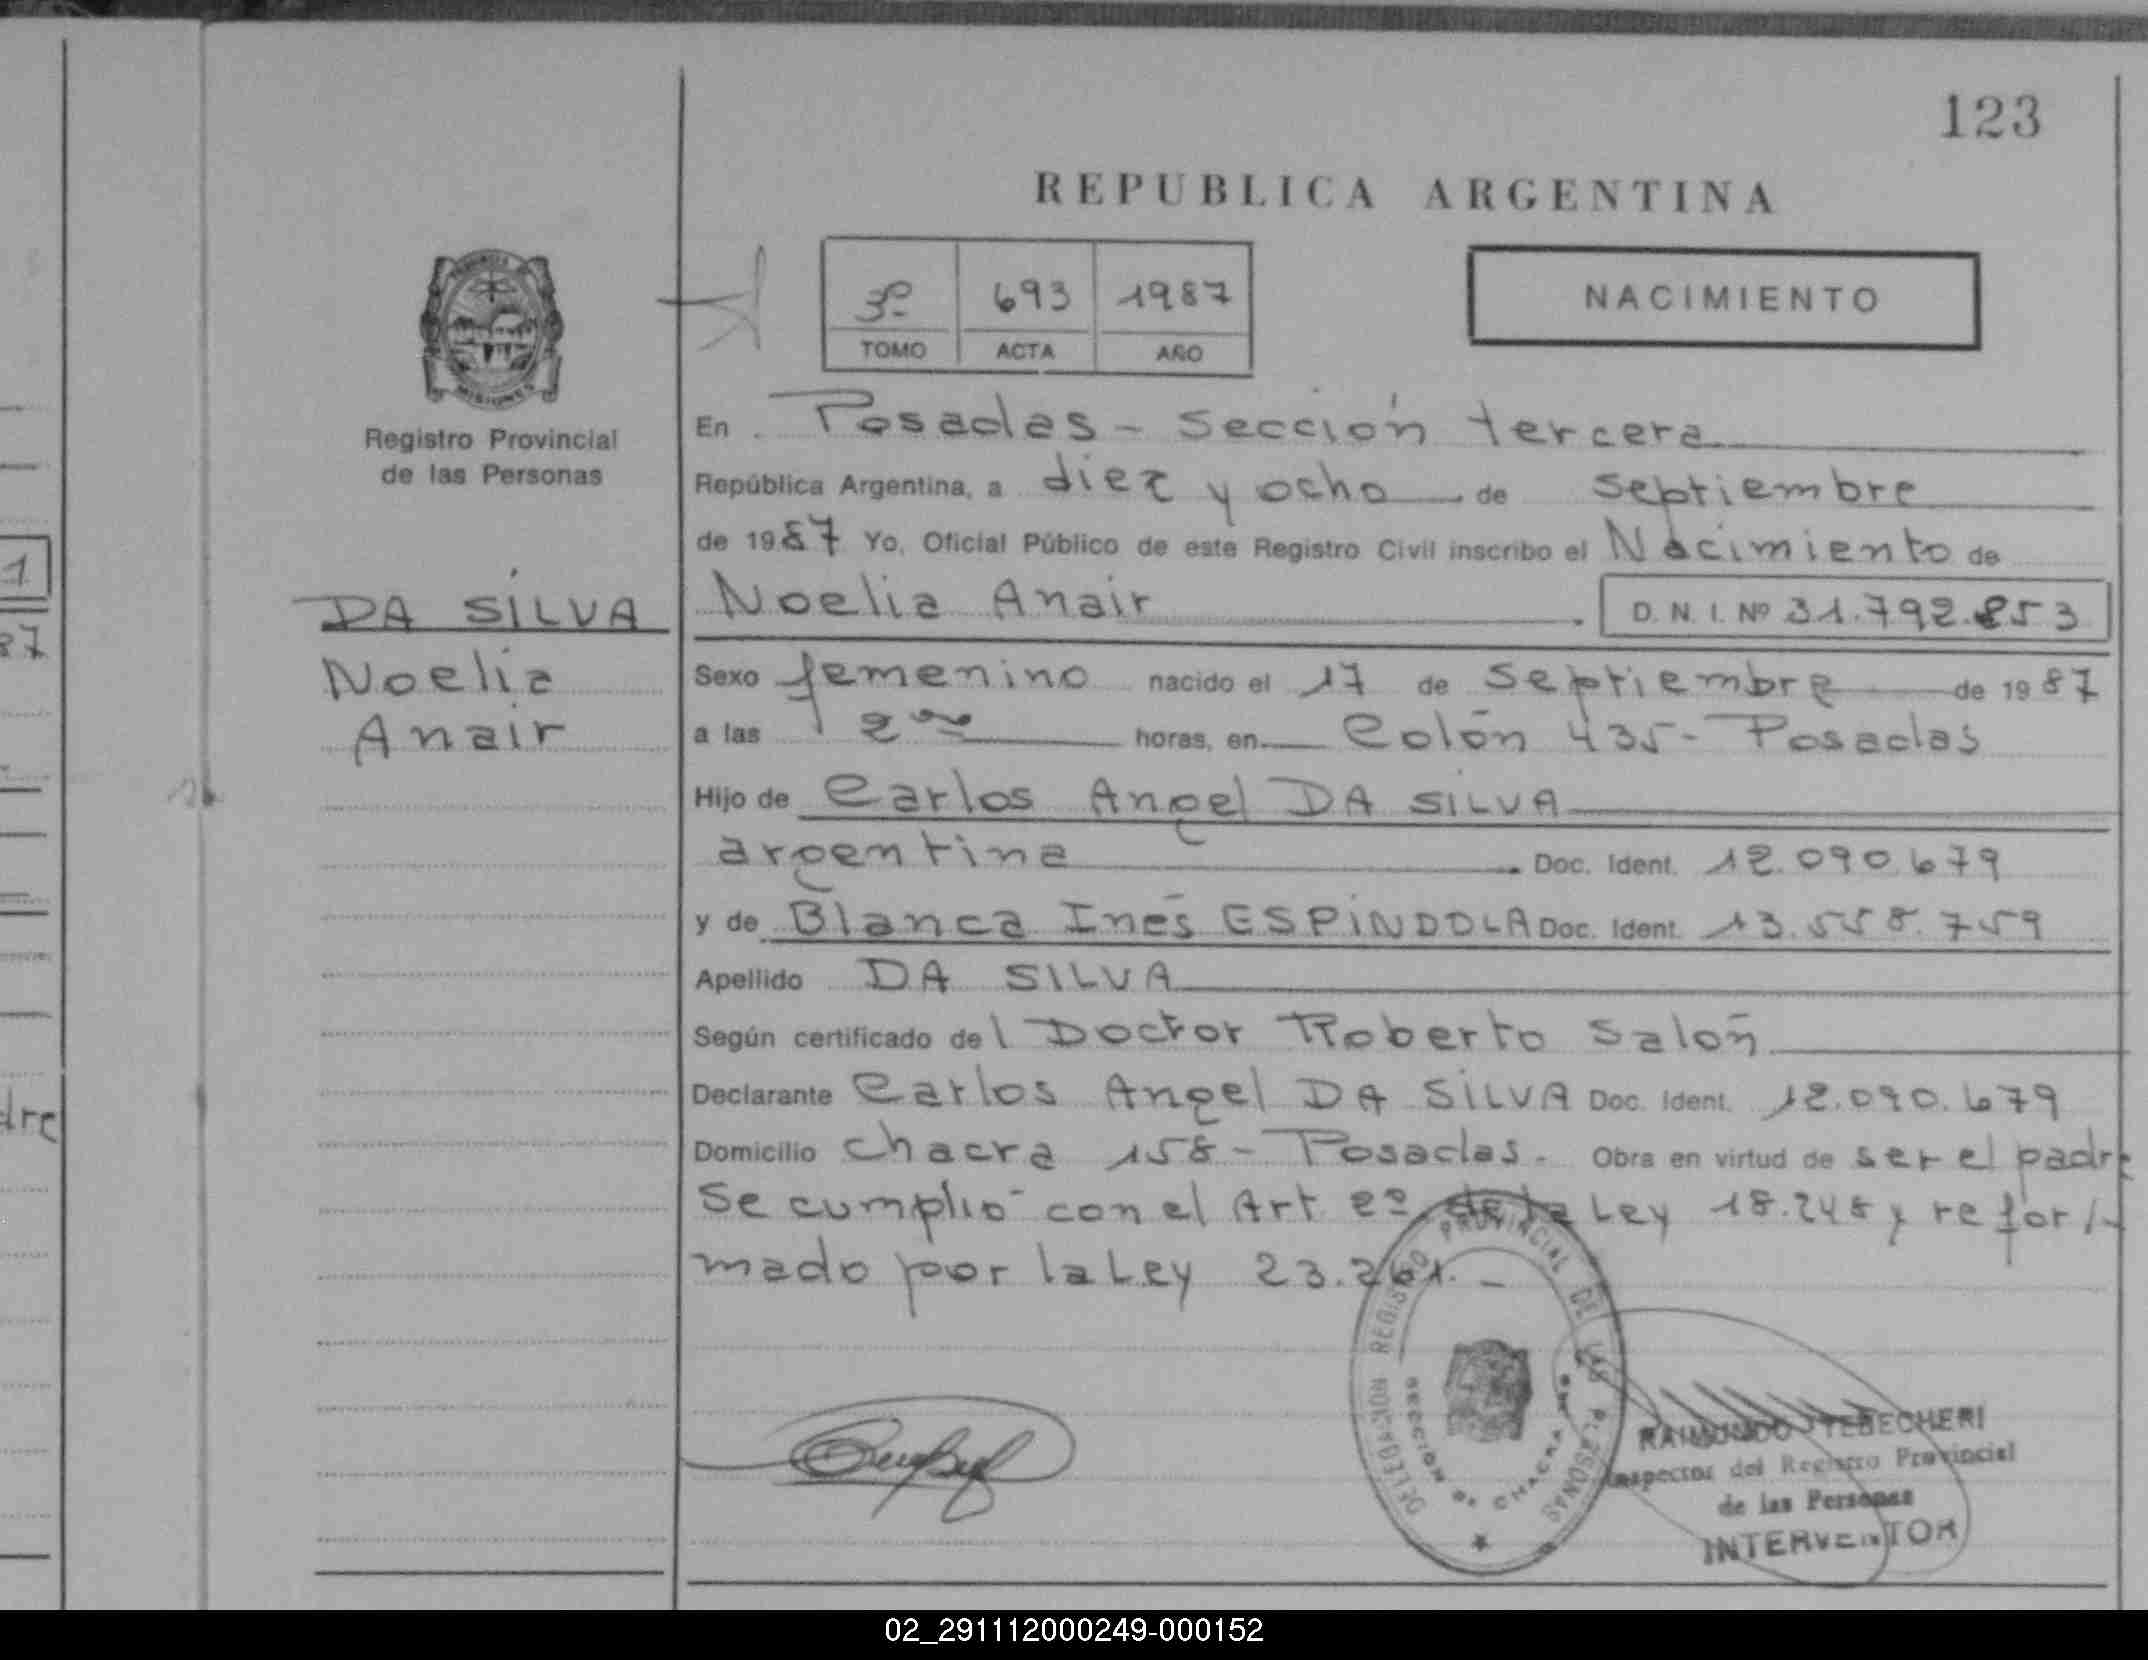 123
REPUBLICA ARGENTINA
3º 693 1987
TOMO ACTA AÑO
NACIMIENTO
Registro Provincial
de las Personas
DA SILVA
Noelia
Anair
En Posadas - sección tercera
República Argentina, a diez y ocho de septiembre
de 1987 Yo, Oficial Público de este Registro Civil inscribo el Nacimiento de
Noelia Anair D. N. I. Nº 31.792.853
Sexo femenino nacido el 17 de septiembre de 1987
a las 2 horas, en Colón 435 - Posadas
Hijo de Carlos Angel DA SILVA
argentina Doc. Ident. 12.090.679
y de Blanca Inés ESPINDOLA Doc. Ident. 13.558.759
Apellido DA SILVA
Según certificado del Doctor Roberto Salon
Declarante Carlos Angel DA SILVA Doc. Ident. 12.090.679
Domicilio Chacra 158 - Posadas. Obra en virtud de ser el padre
Se cumplió con el Art 2º de la Ley 18.248 y refor/-
mado por la Ley 23.261. -
DELEGACION REGISTRO PROVINCIAL DE LAS PERSONAS
SECCION 3ª CHACRA
RAIMUNDO J TEBECHERI
Inspector del Registro Provincial
de las Personas
INTERVENTOR
1
87
dre
02_291112000249-000152